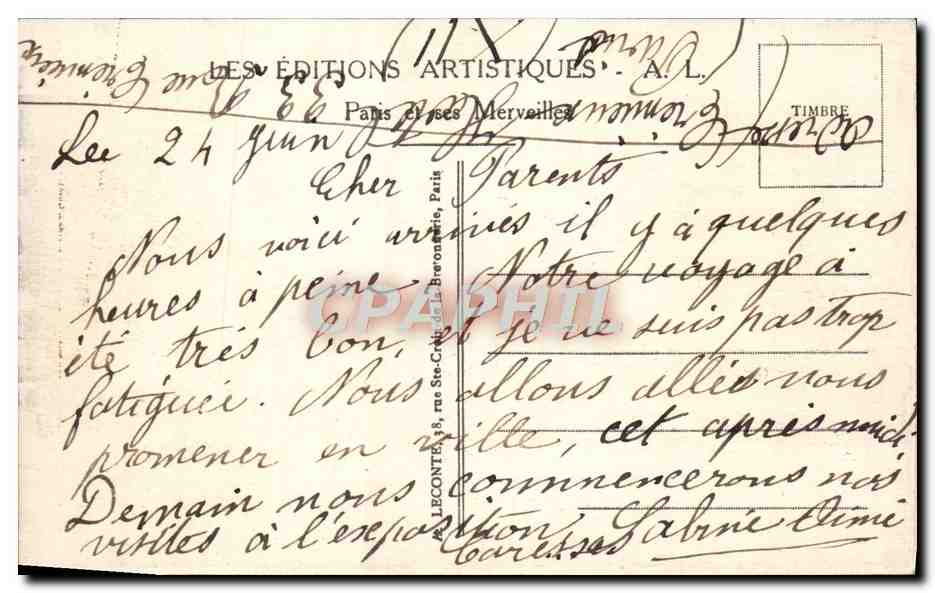 LES ÉDITIONS ARTISTIQUES - A. L.
Paris et ses Merveilles
TIMBRE
33 Rue
Adresse
Le 24 Juin
Cher Parents
Nous voici arrivés il y à quelques
heures à peine. Notre voyage à
été très bon, et je ne suis pas trop
fatiguée. Nous allons allés nous
promener en ville, cet après midi
Demain nous commencerons nos
visites à l'exposition
Caresses Sabine Aimé
LECONTE, 38, rue Ste-Croix de la Bretonnerie, Paris
CPAPHIL